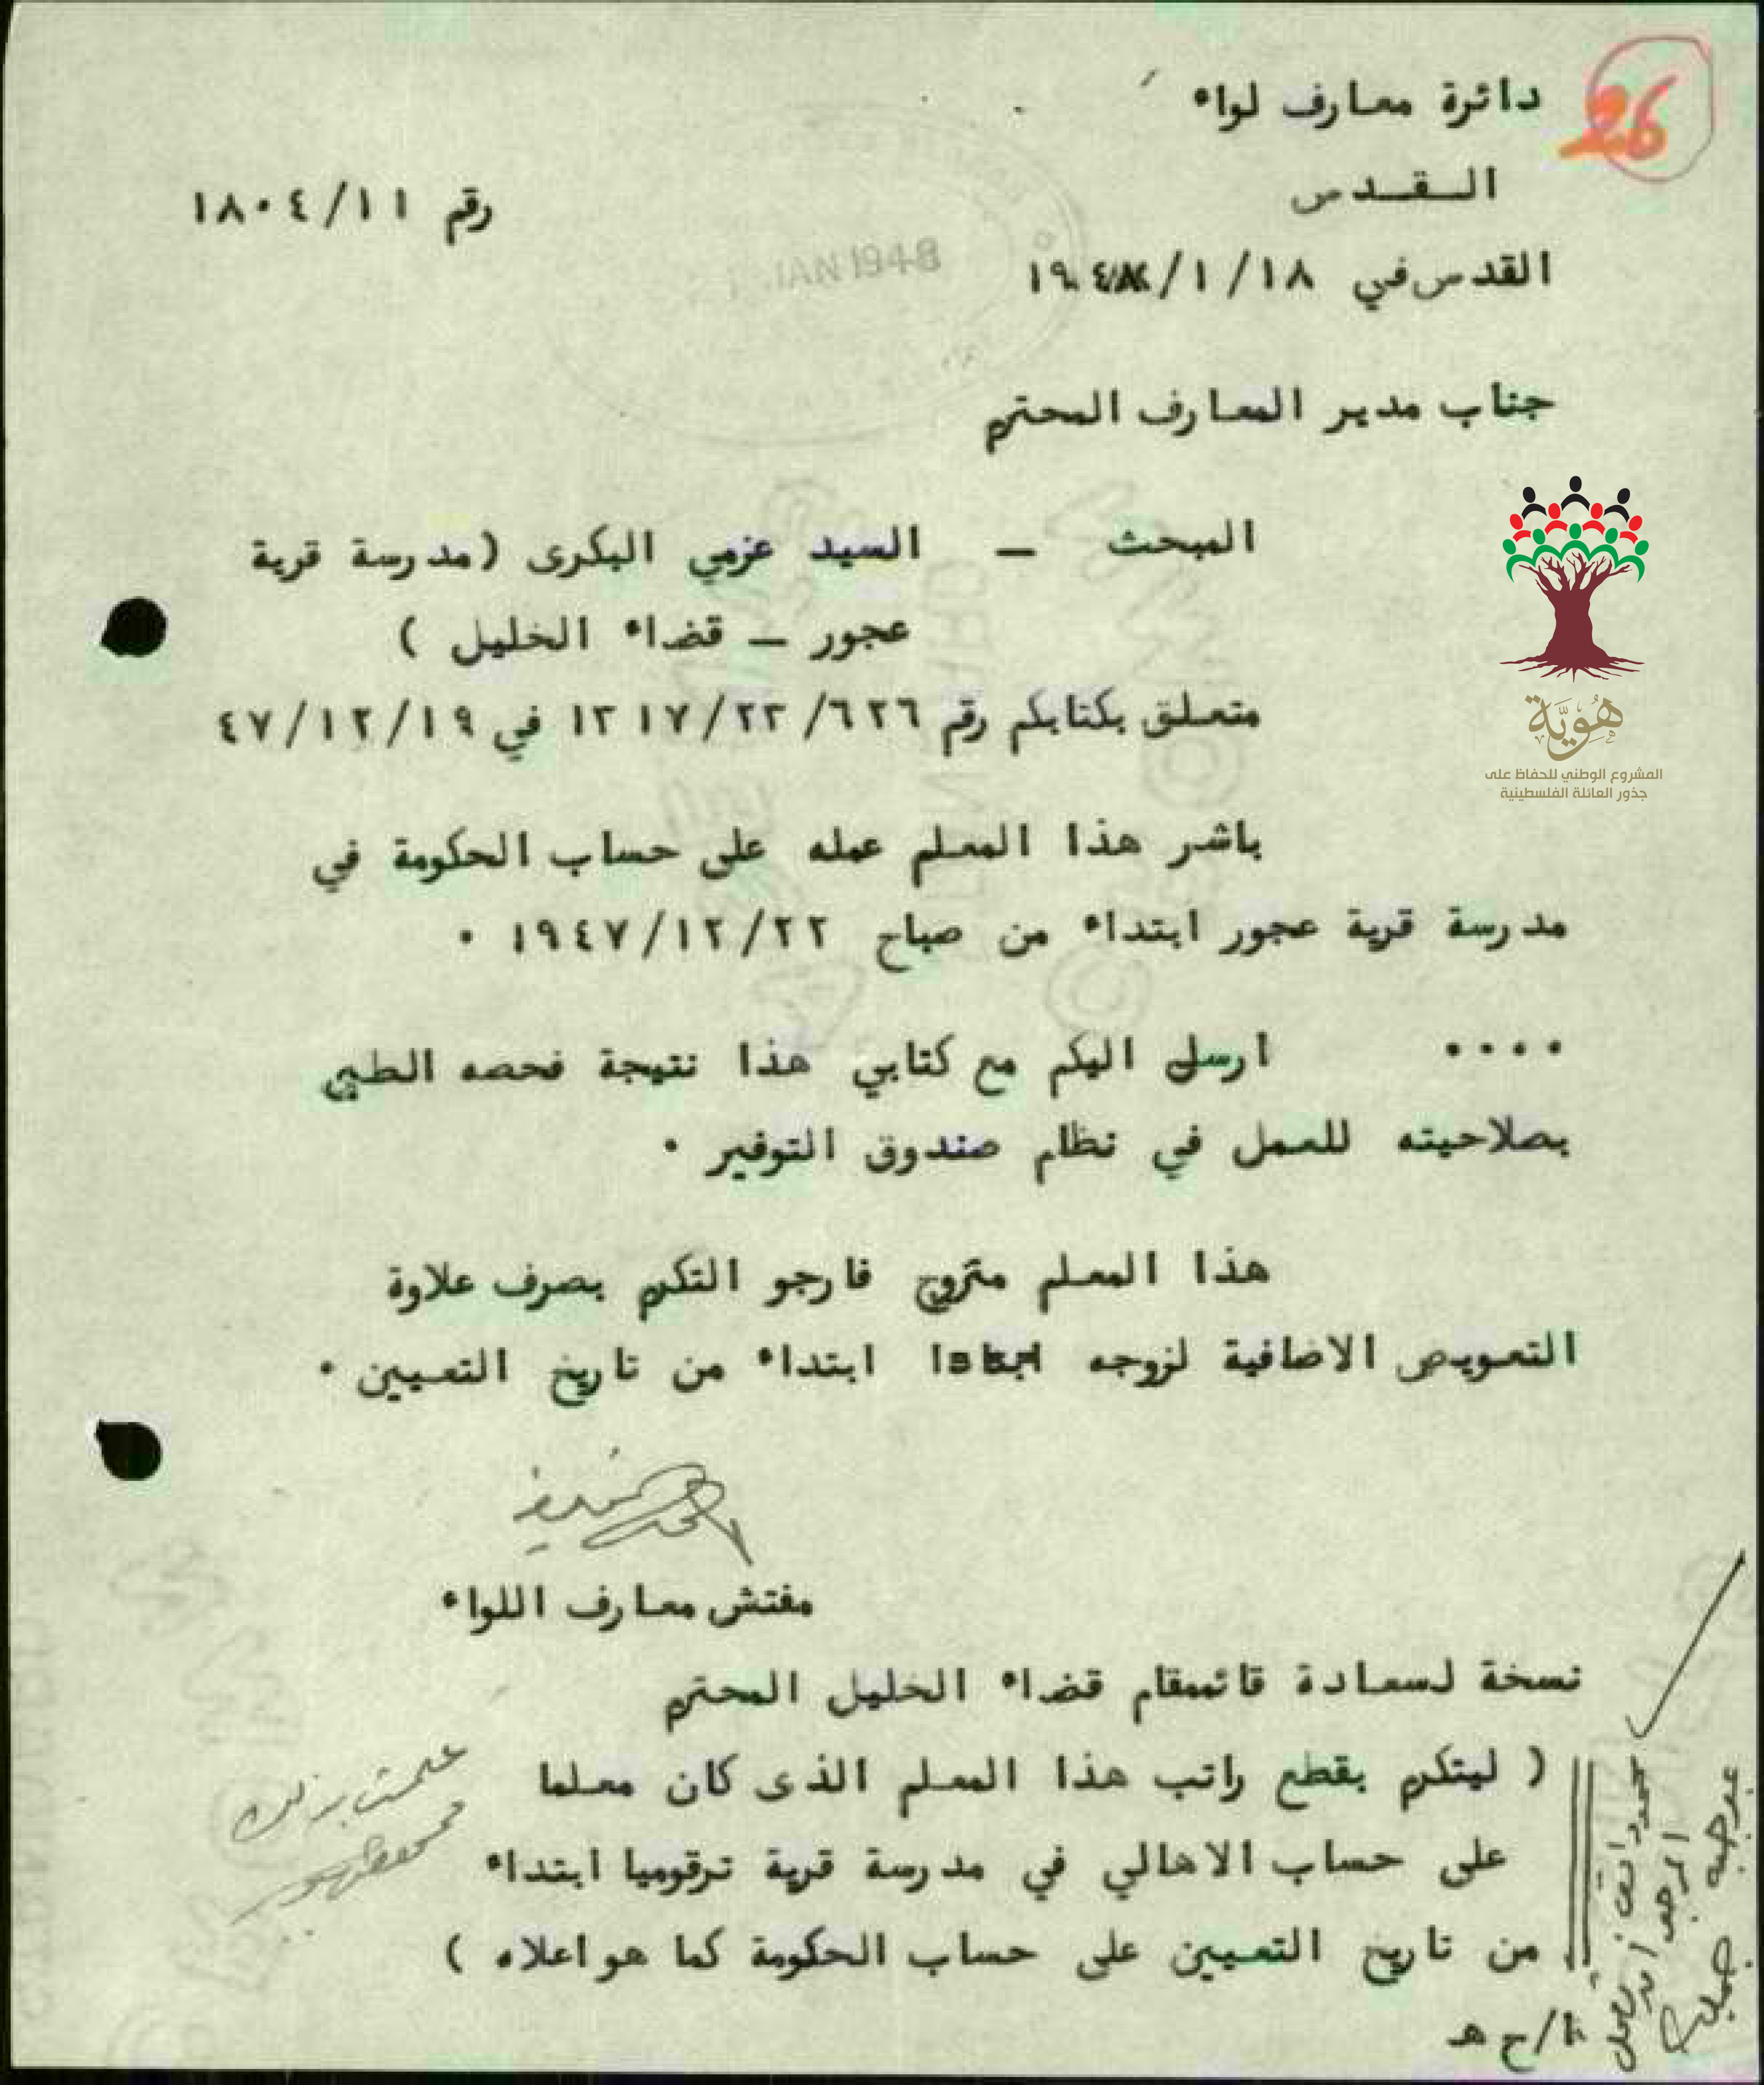 26
دائرة معارف لواء
القدس
رقم ١٨٠٤/١١
القدس في ١٩٤٨/١/١٨
JAN 1948
جناب مدير المعارف المحترم
المبحث – السيد عزمي البكرى (مدرسة قرية
عجور – قضاء الخليل )
متعلق بكتابكم رقم ٦٢٦/ ١٣١٧/٢٣ في ٤٧/١٢/١٩
هُوِيَّة
المشروع الوطني للحفاظ على
جذور العائلة الفلسطينية
باشر هذا المعلم عمله على حساب الحكومة في
مدرسة قرية عجور ابتداء من صباح ١٩٤٧/١٢/٢٢ ٠
٠٠٠٠ ارسل اليكم مع كتابي هذا نتيجة فحصه الطبي
بصلاحيته للعمل في نظام صندوق التوفير ٠
هذا المعلم متزوج فارجو التكرم بصرف علاوة
التعويص الاضافية لزوجه ابتداء من تاريخ التعيين ٠
مفتش معارف اللواء
نسخة لسعادة قائممقام قضاء الخليل المحترم
( ليتكرم بقطع راتب هذا المعلم الذى كان معلما
على حساب الاهالي في مدرسة قرية ترقوميا ابتداء
من تاريخ التعيين على حساب الحكومة كما هو اعلاه )
/ح هـ
علمت بذلك